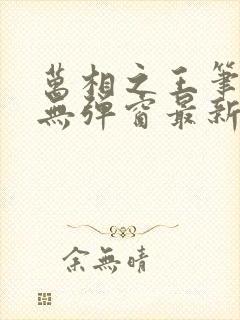 萬相之王筆
無彈窗最新
余無晴